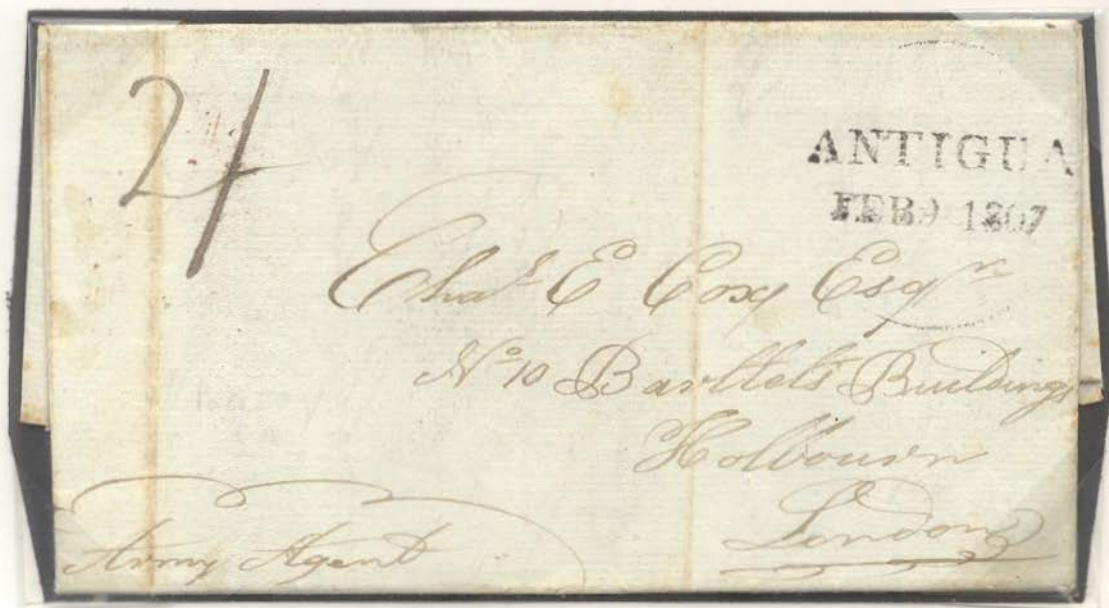 2/
ANTIGUA
FEB 9 1807
Chas E Cox Esqr
No 10 Bartlets Buildings
Holbourn
London
Army Agent